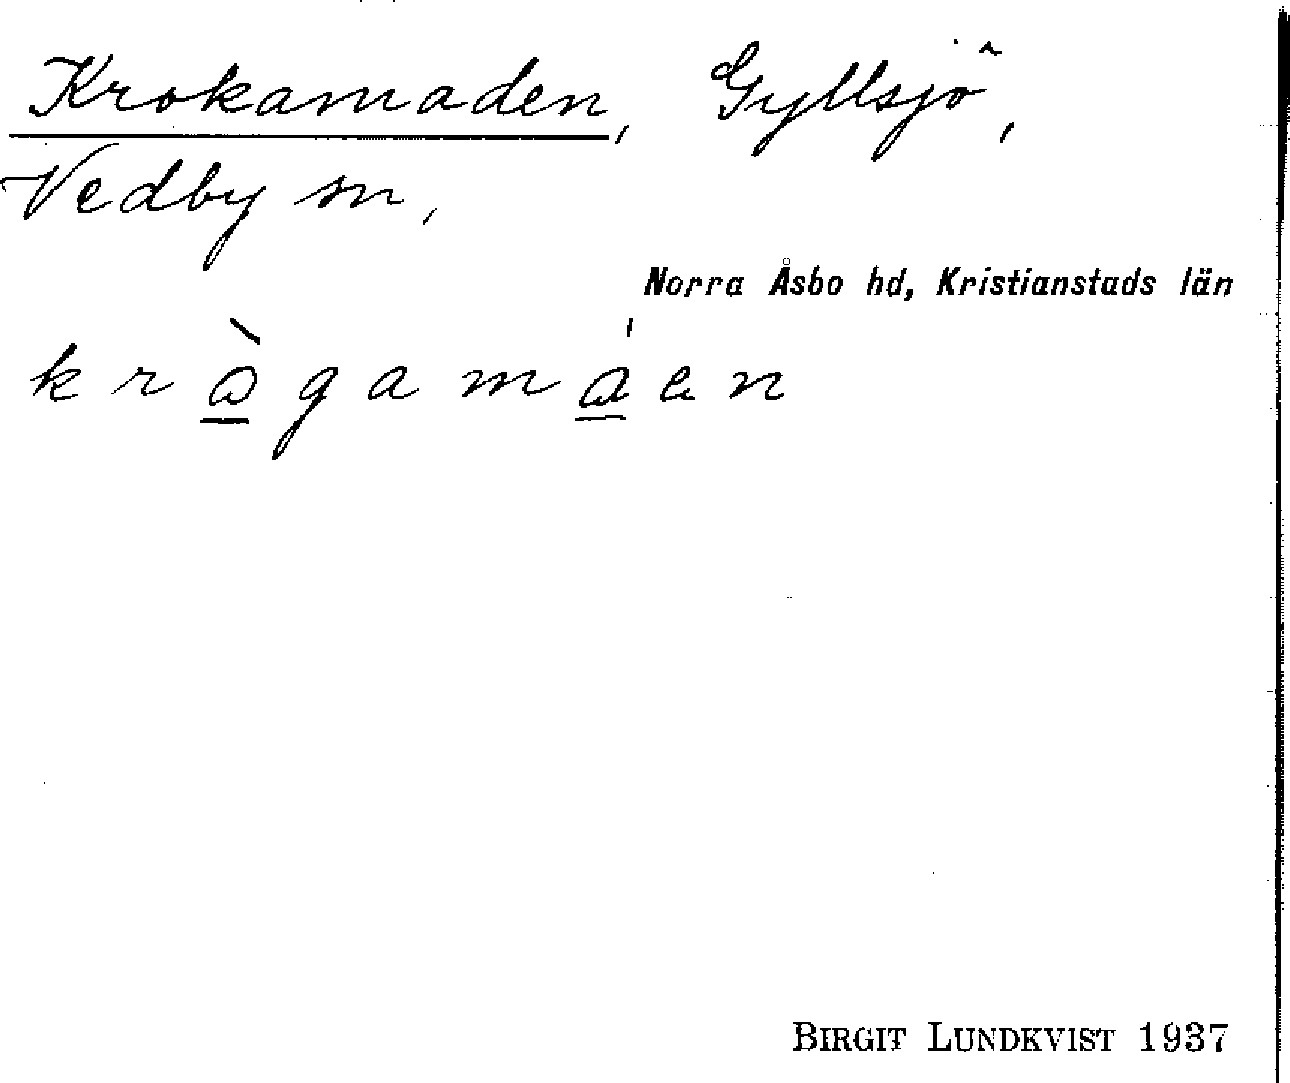 Krokamaden, Gyllsjö,
Vedby sn,
Norra Åsbo hd, Kristianstads län
krògamáen
BIRGIT LUNDKVIST 1937